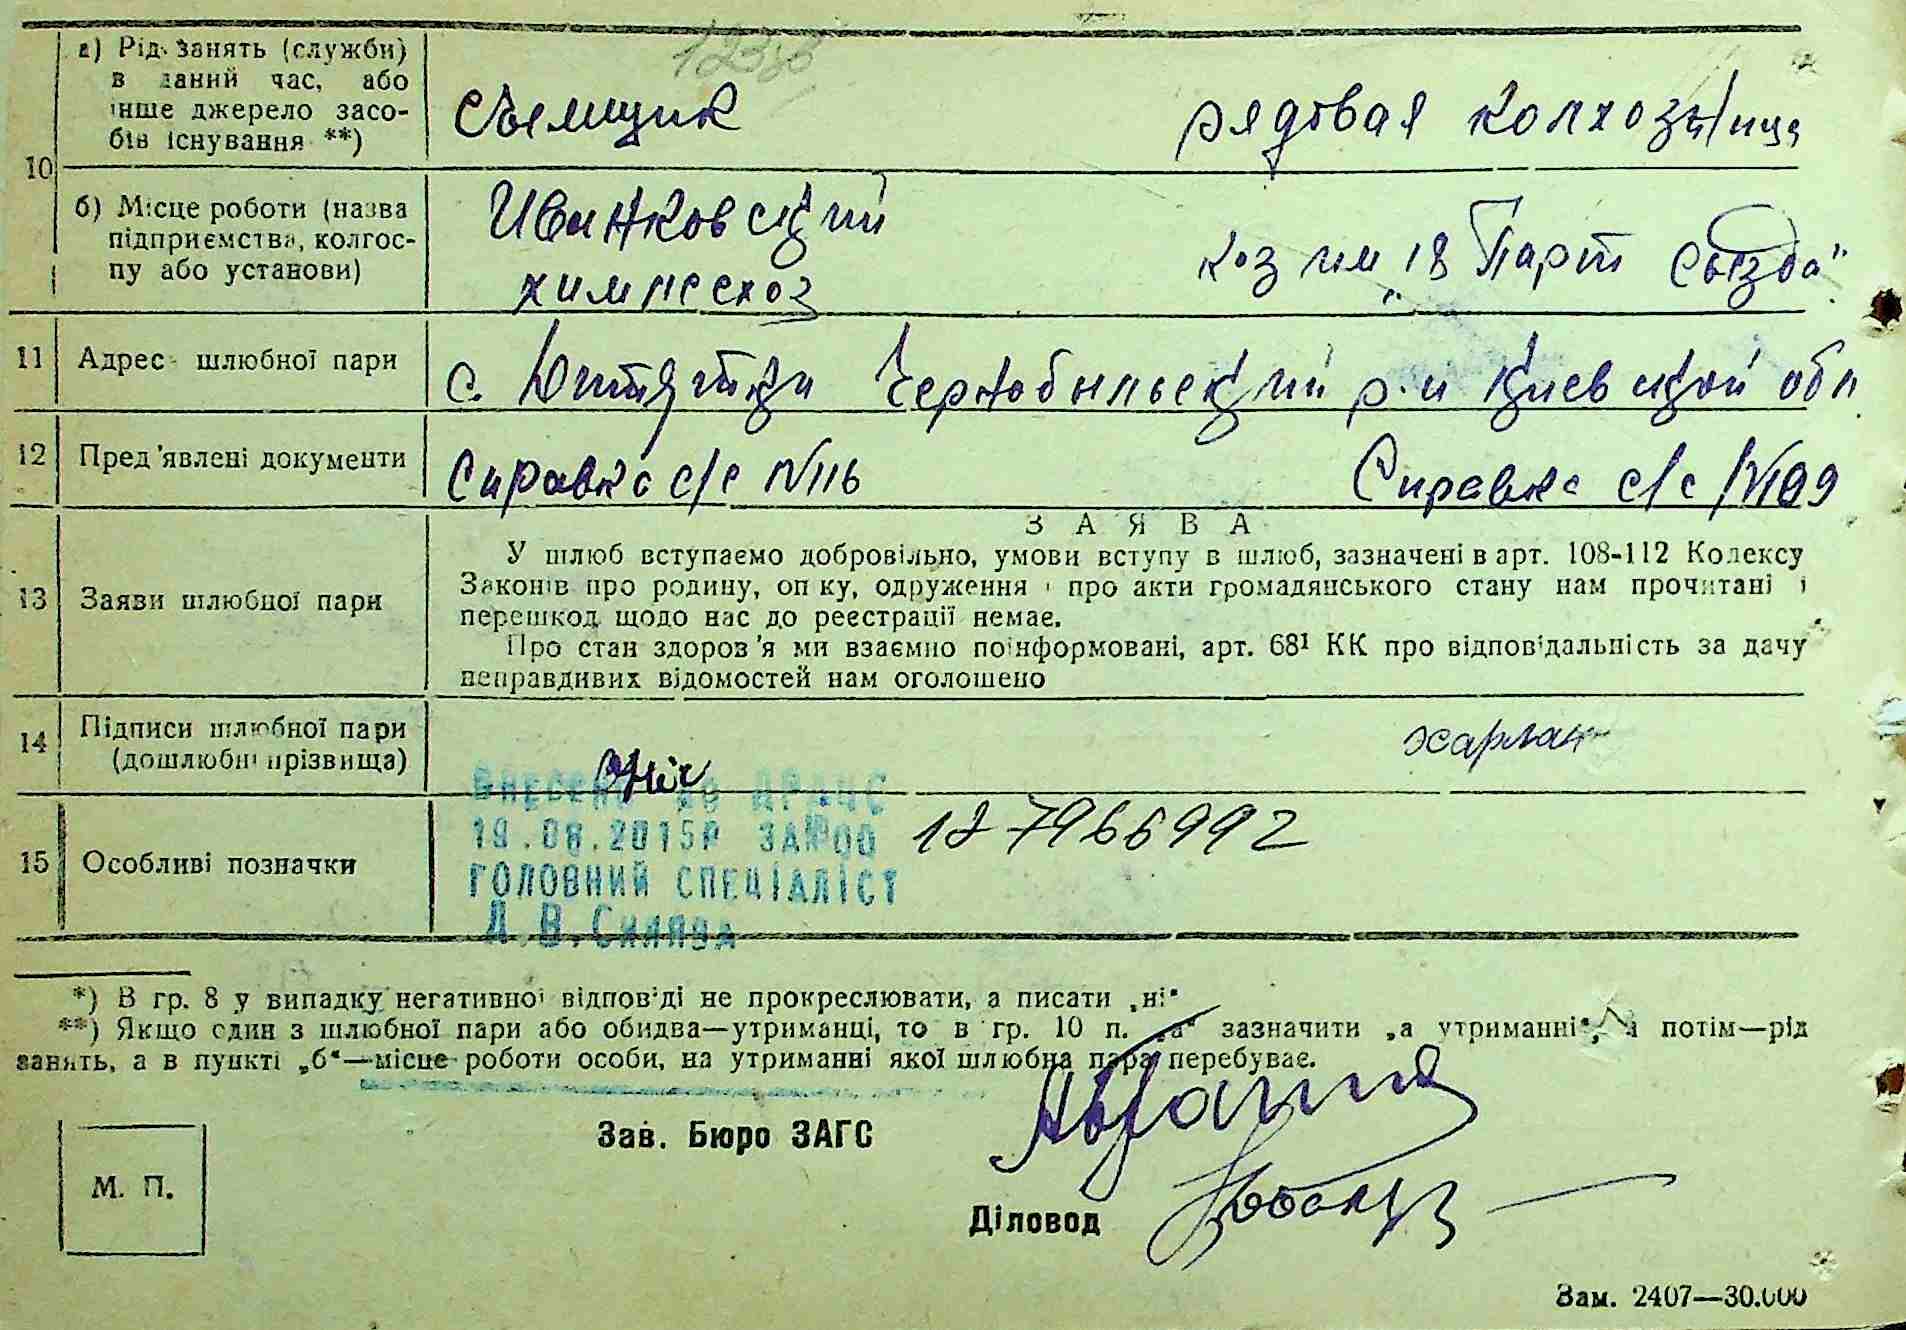 а) Рід занять (служби)
в даний час, або
інше джерело засо-
бів існування **)
съемщик
рядовая колхозница
10
б) Місце роботи (назва
підприємства, колгос-
пу або установи)
Иванковский
химлесхоз
коз им „18 Парт съезда"
11 Адрес шлюбної пари
с. Чернобыльский р-н Киевской обл
12 Пред'явлені документи
Справка с/с №116
Справка с/с №109
ЗАЯВА
13 Заяви шлюбної пари
У шлюб вступаємо добровільно, умови вступу в шлюб, зазначені в арт. 108-112 Кодексу
Законів про родину, опіку, одруження і про акти громадянського стану нам прочитані і
перешкод щодо нас до реєстрації немає.
Про стан здоров'я ми взаємно поінформовані, арт. 68¹ КК про відповідальність за дачу
неправдивих відомостей нам оголошено
14 Підписи шлюбної пари
(дошлюбні прізвища)
Харлан
15 Особливі позначки
ВНЕСЕНО ДО ДРАЦС
19.08.2015Р ЗА №00
187966992
ГОЛОВНИЙ СПЕЦІАЛІСТ
*) В гр. 8 у випадку негативної відповіді не прокреслювати, а писати „ні"
**) Якщо один з шлюбної пари або обидва—утриманці, то в гр. 10 п. „а" зазначити „а утриманні", а потім—рід
занять, а в пункті „б"—місце роботи особи, на утриманні якої шлюбна пара перебуває.
Зав. Бюро ЗАГС
М. П.
Діловод
Зам. 2407—30.000